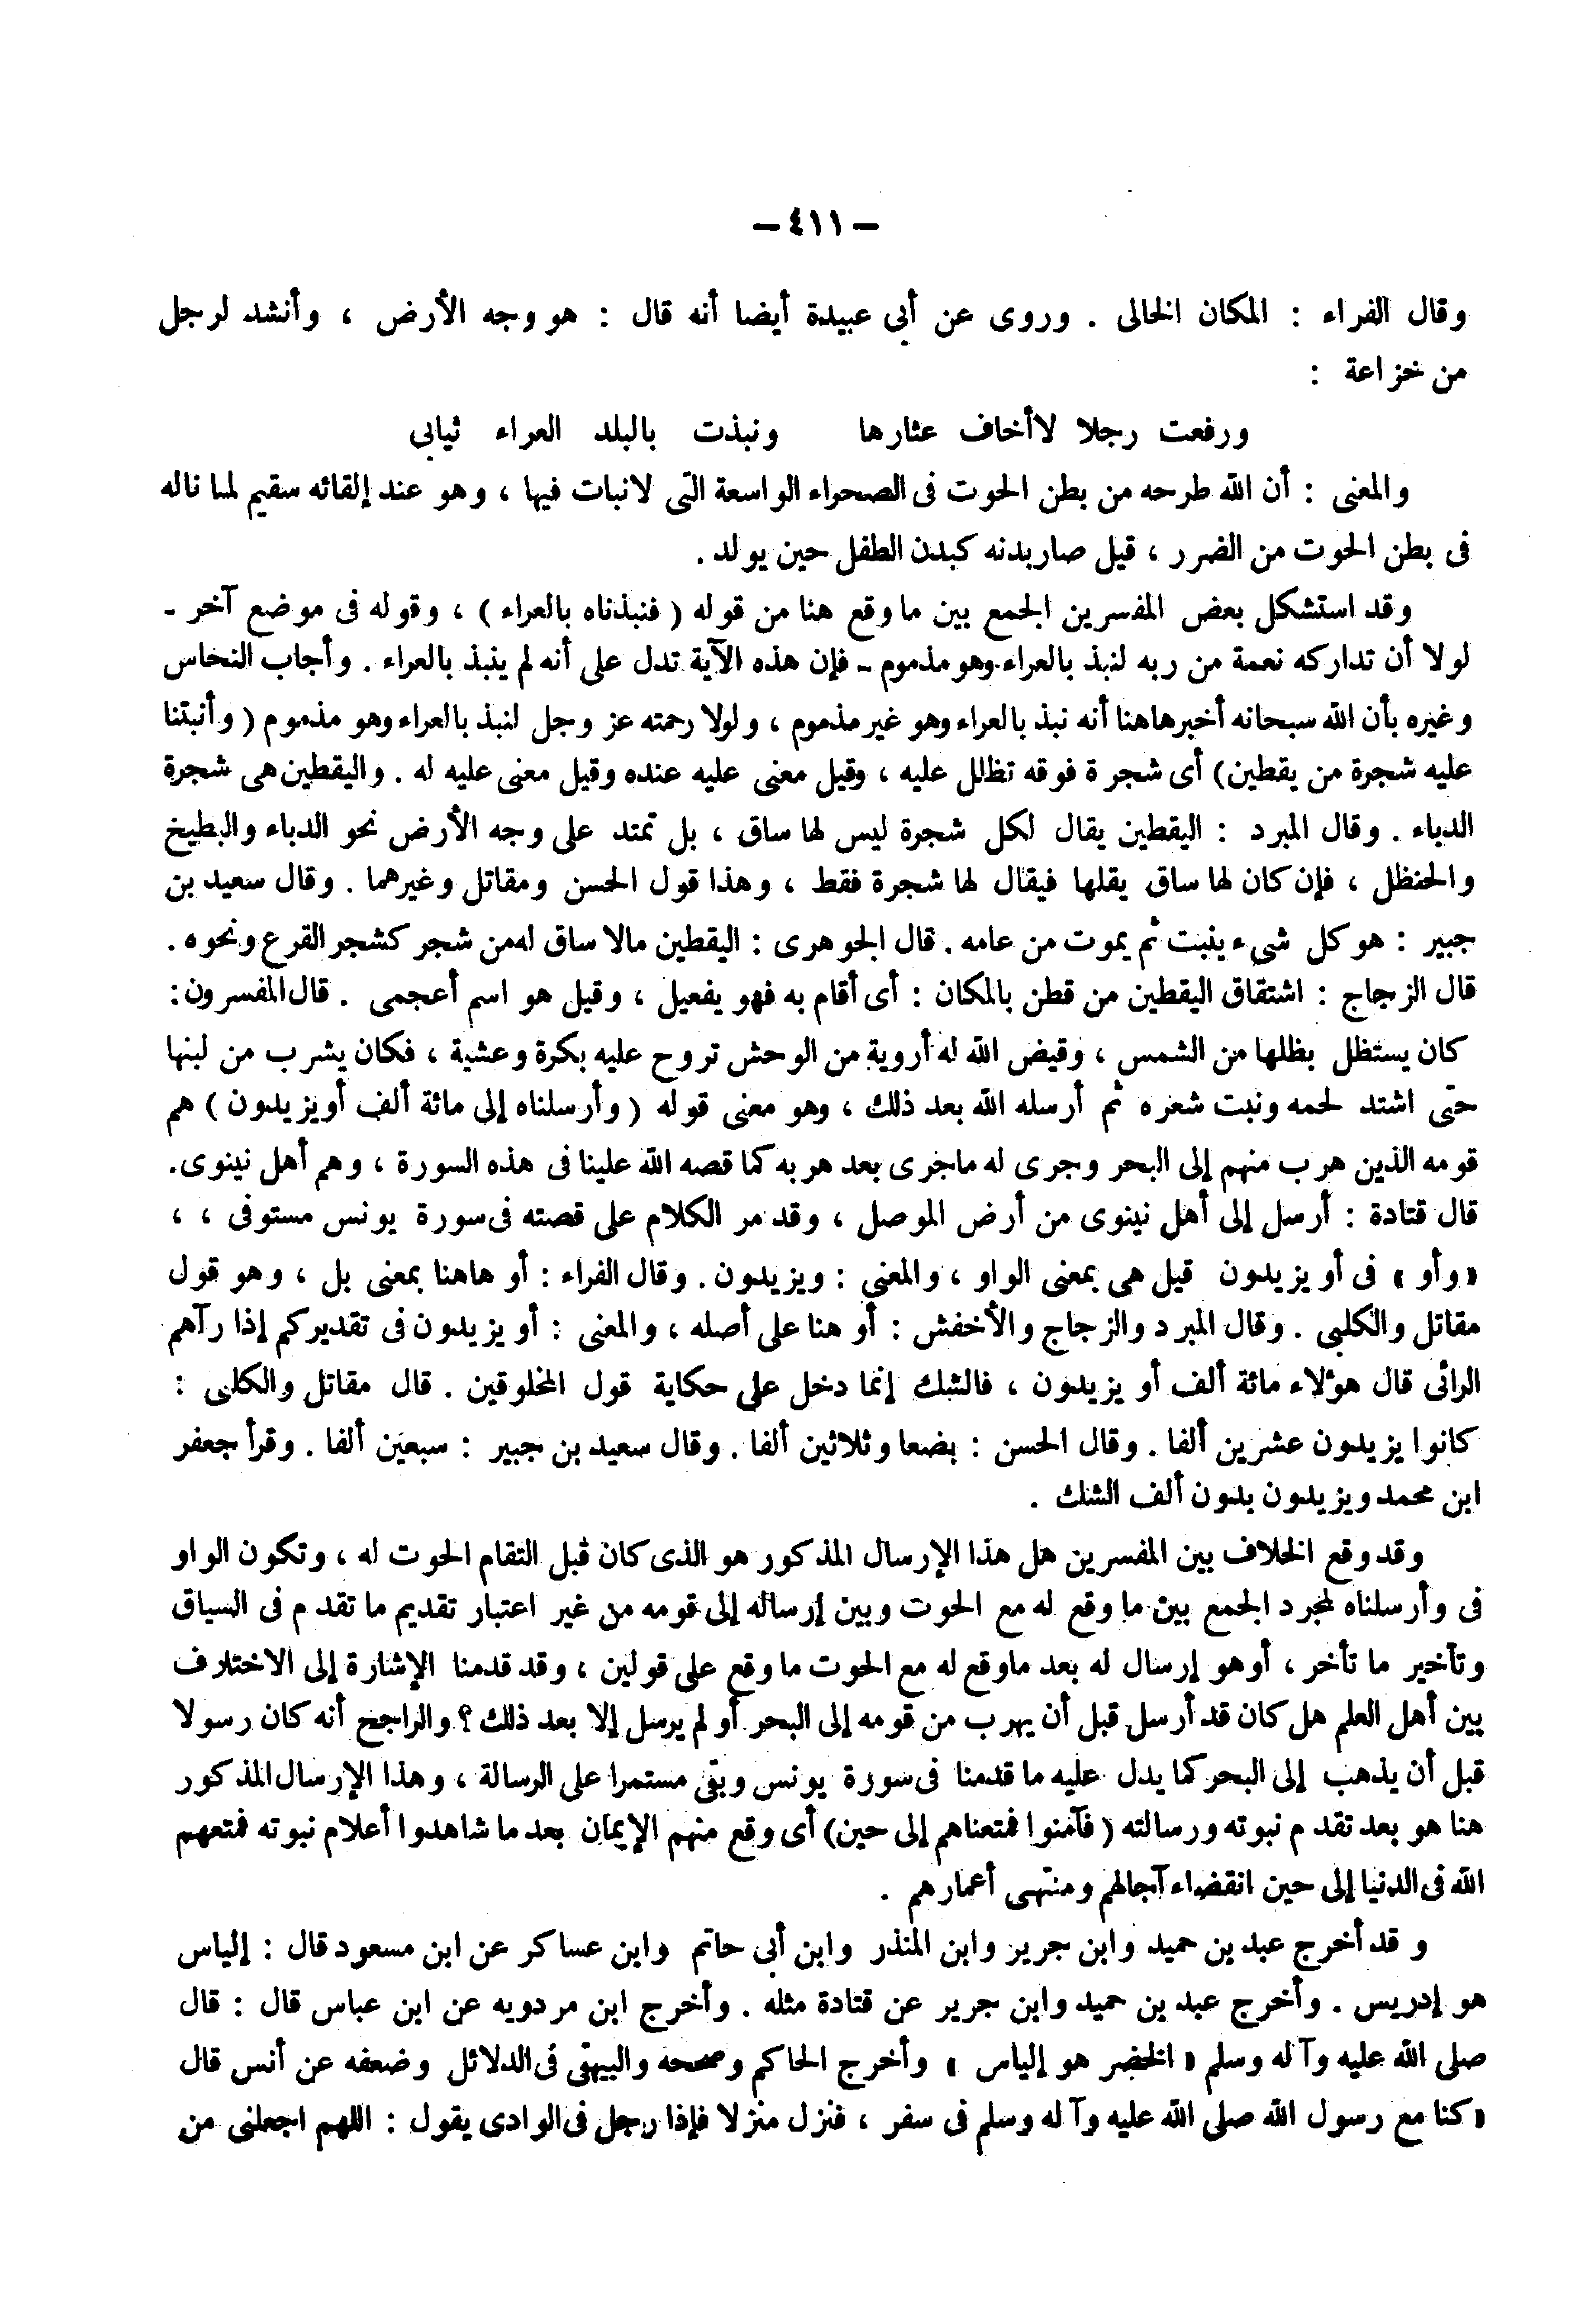 — ٤١١ —
وقال الفراء : المكان الخالى . وروى عن أبى عبيدة أيضا أنه قال : هو وجه الأرض ، وأنشد لرجل
من خزاعة :
ورفعت رجلا لاأخاف عثارها ونبذت بالبلد العراء ثيابى
والمعنى : أن الله طرحه من بطن الحوت فى الصحراء الواسعة التى لانبات فيها ، وهو عند إلقائه سقيم لما ناله
فى بطن الحوت من الضرر ، قيل صار بدنه كبدن الطفل حين يولد .
وقد استشكل بعض المفسرين الجمع بين ماوقع هنا من قوله ( فنبذناه بالعراء ) ، وقوله فى موضع آخر -
لولا أن تداركه نعمة من ربه لنبذ بالعراء وهو مذموم - فإن هذه الآية تدل على أنه لم ينبذ بالعراء . وأجاب النحاس
وغيره بأن الله سبحانه أخبر هاهنا أنه نبذ بالعراء وهو غير مذموم ، ولولا رحمته عز وجل لنبذ بالعراء وهو مذموم ( وأنبتنا
عليه شجرة من يقطين) أى شجرة فوقه تظلل عليه ، وقيل معنى عليه عنده وقيل معنى عليه له . واليقطين هى شجرة
الدباء . وقال المبرد : اليقطين يقال لكل شجرة ليس لها ساق ، بل تمتد على وجه الأرض نحو الدباء والبطيخ
والحنظل ، فإن كان لها ساق يقلها فيقال لها شجرة فقط ، وهذا قول الحسن ومقاتل وغيرهما . وقال سعيد بن
جبير : هو كل شىء ينبت ثم يموت من عامه . قال الجوهرى : اليقطين مالا ساق له من شجر كشجر القرع ونحوه .
قال الزجاج : اشتقاق اليقطين من قطن بالمكان : أى أقام به فهو يفعيل ، وقيل هو اسم أعجمى . قال المفسرون :
كان يستظل بظلها من الشمس ، وقيض الله له أروية من الوحش تروح عليه بكرة وعشية ، فكان يشرب من لبنها
حتى اشتد لحمه ونبت شعره ثم أرسله الله بعد ذلك ، وهو معنى قوله ( وأرسلناه إلى مائة ألف أو يزيدون ) هم
قومه الذين هرب منهم إلى البحر وجرى له ماجرى بعد هربه كما قصه الله علينا فى هذه السورة ، وهم أهل نينوى.
قال قتادة : أرسل إلى أهل نينوى من أرض الموصل ، وقد مر الكلام على قصته فى سورة يونس مستوفى ، ،
« وأو » فى أو يزيدون قيل هى بمعنى الواو ، والمعنى : ويزيدون . وقال الفراء : أو هاهنا بمعنى بل ، وهو قول
مقاتل والكلبى . وقال المبرد والزجاج والأخفش : أو هنا على أصله ، والمعنى : أو يزيدون فى تقديركم إذا رآهم
الرائى قال هؤلاء مائة ألف أو يزيدون ، فالشك إنما دخل على حكاية قول المخلوقين . قال مقاتل والكلبى :
كانوا يزيدون عشرين ألفا . وقال الحسن : بضعا وثلاثين ألفا . وقال سعيد بن جبير : سبعين ألفا . وقرأ جعفر
ابن محمد ويزيدون بدون ألف الشك .
وقد وقع الخلاف بين المفسرين هل هذا الإرسال المذكور هو الذى كان قبل التقام الحوت له ، وتكون الواو
فى وأرسلناه لمجرد الجمع بين ما وقع له مع الحوت وبين إرساله إلى قومه من غير اعتبار تقديم ما تقدم فى السياق
وتأخير ما تأخر ، أو هو إرسال له بعد ماوقع له مع الحوت ما وقع على قولين ، وقد قدمنا الإشارة إلى الاختلاف
بين أهل العلم هل كان قد أرسل قبل أن يهرب من قومه إلى البحر أو لم يرسل إلا بعد ذلك ؟ والراجح أنه كان رسولا
قبل أن يذهب إلى البحر كما يدل عليه ما قدمنا فى سورة يونس وبقى مستمرا على الرسالة ، وهذا الإرسال المذكور
هنا هو بعد تقدم نبوته ورسالته ( فآمنوا فمتعناهم إلى حين) أى وقع منهم الإيمان بعد ما شاهدوا أعلام نبوته فمتعهم
الله فى الدنيا إلى حين انقضاء آجالهم ومنتهى أعمارهم .
وقد أخرج عبد بن حميد وابن جرير وابن المنذر وابن أبى حاتم وابن عساكر عن ابن مسعود قال : إلياس
هو إدريس . وأخرج عبد بن حميد وابن جرير عن قتادة مثله . وأخرج ابن مردويه عن ابن عباس قال : قال
صلى الله عليه وآله وسلم « الخضر هو إلياس » وأخرج الحاكم وصححه والبيهقى فى الدلائل وضعفه عن أنس قال
« كنا مع رسول الله صلى الله عليه وآله وسلم فى سفر ، فنزل منزلا فإذا رجل فى الوادى يقول : اللهم اجعلنى من